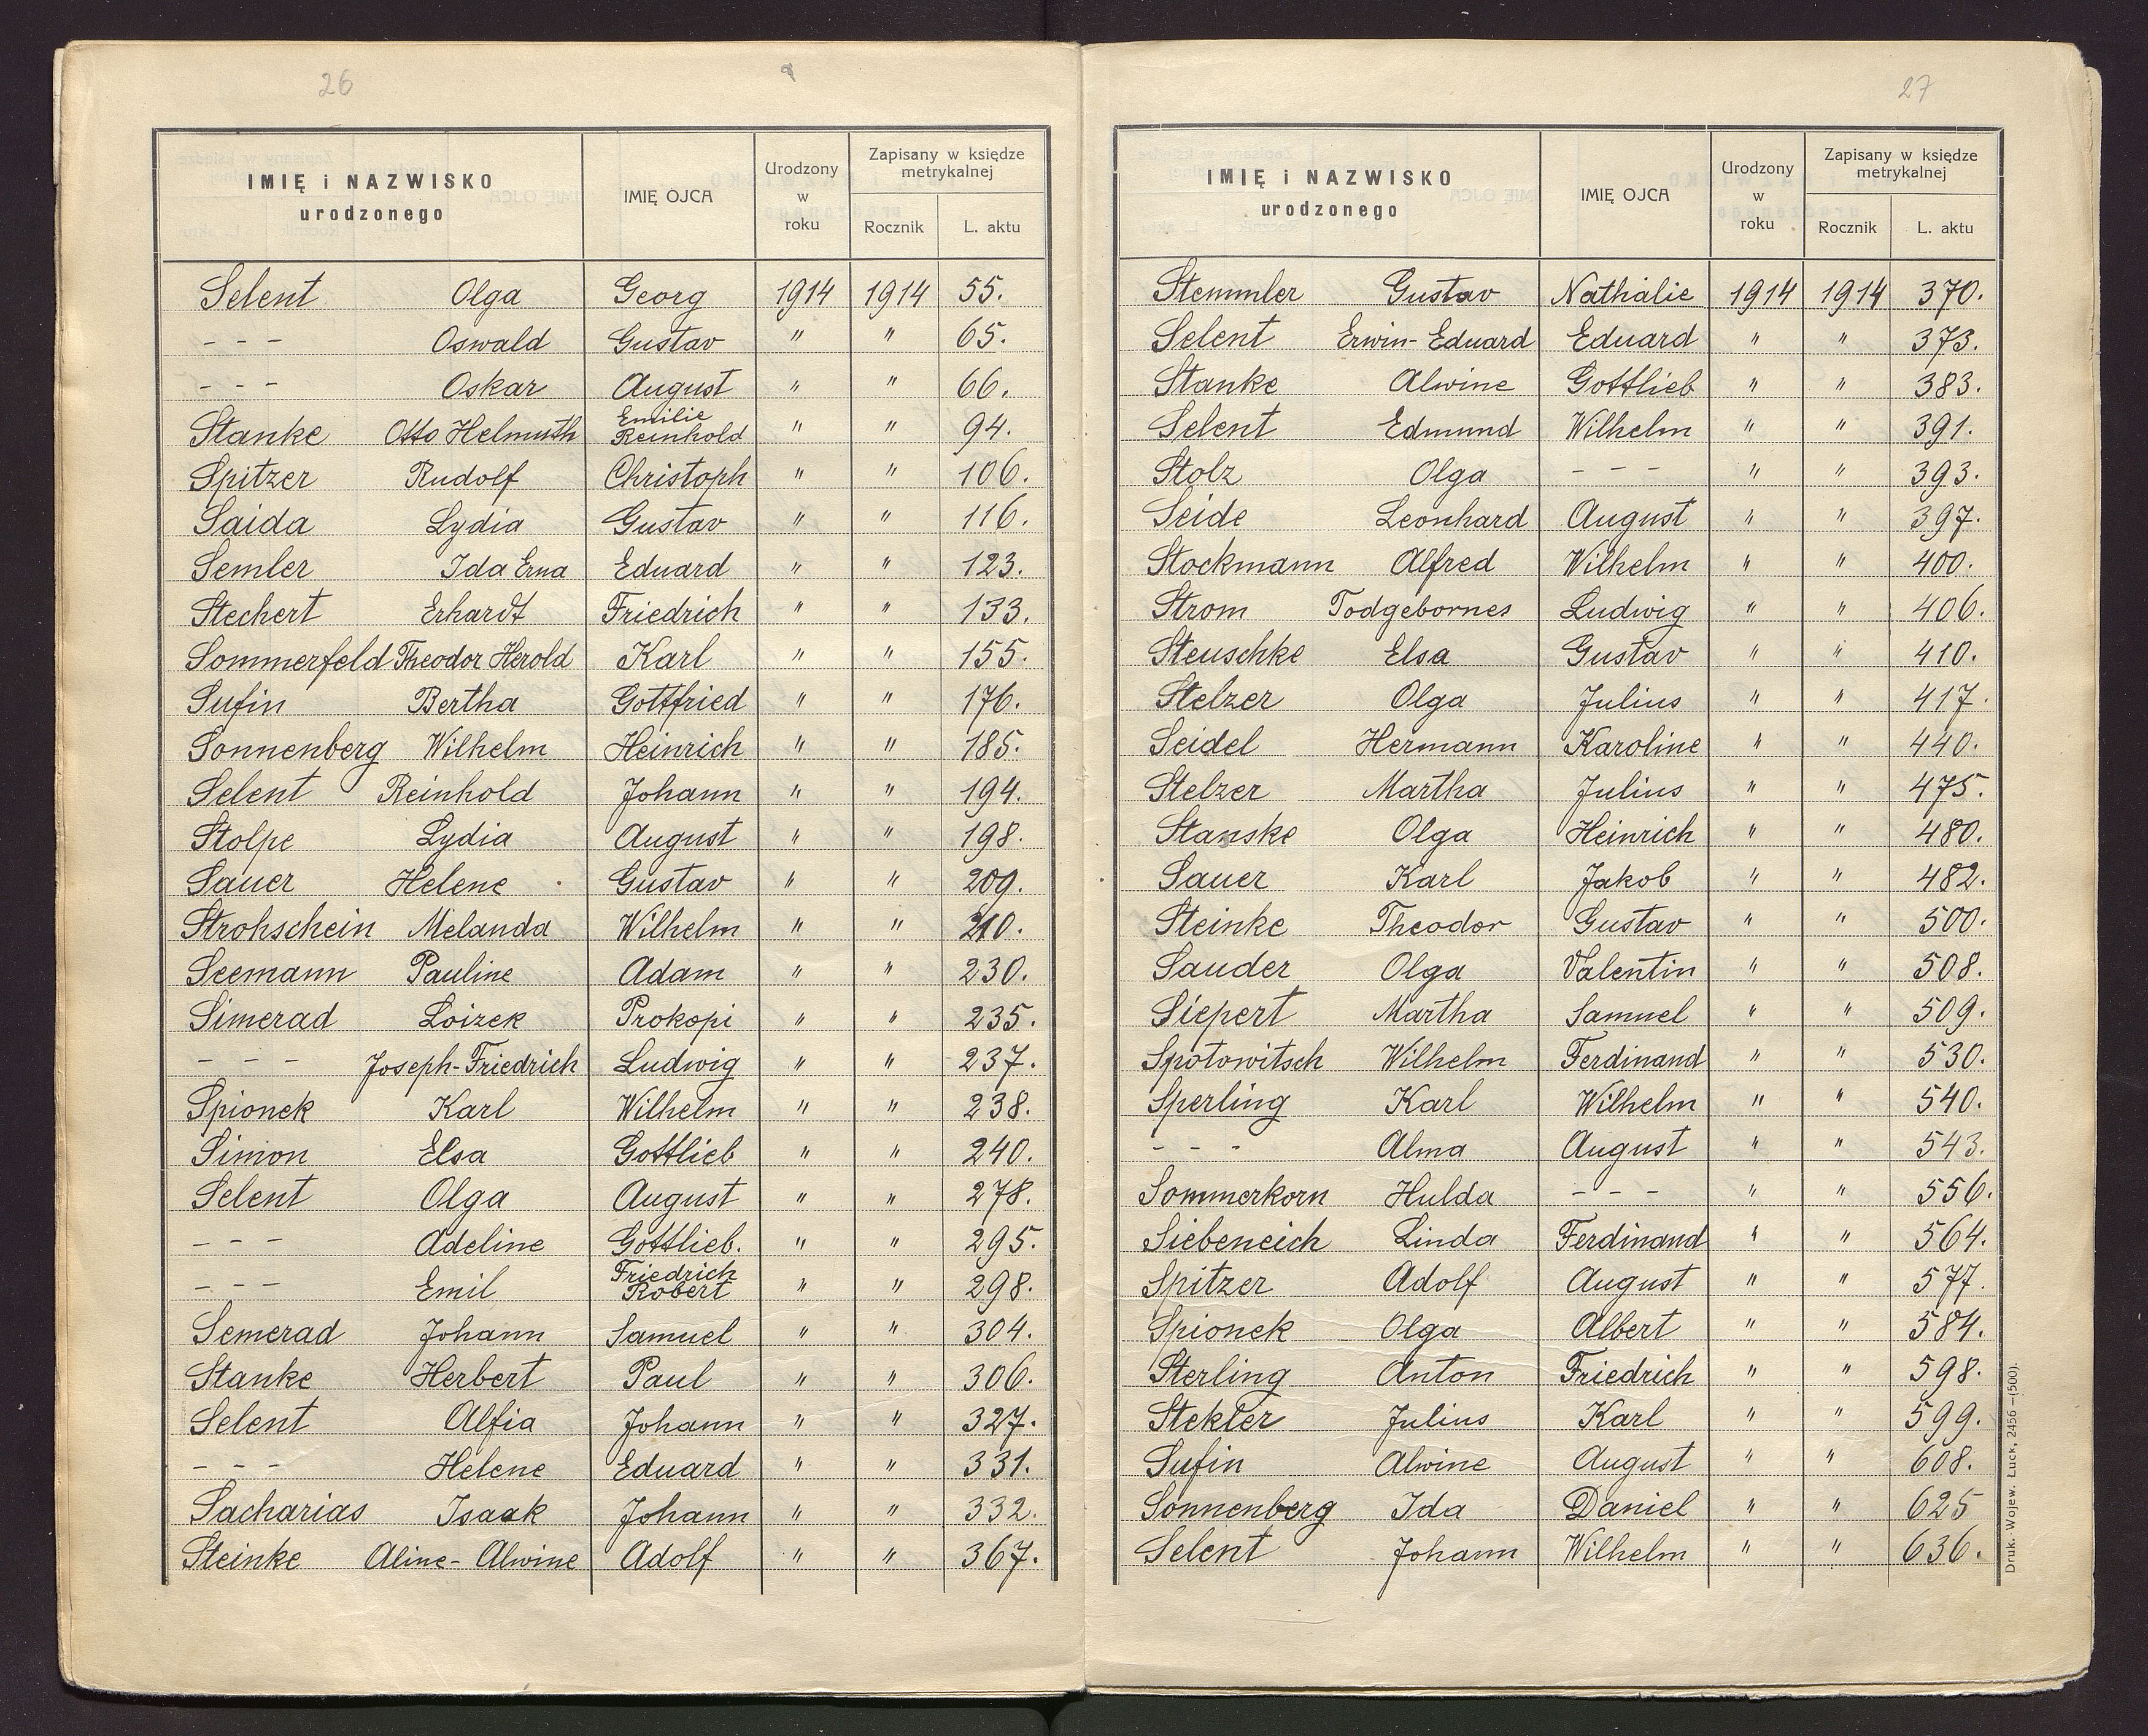 26
IMIĘ i NAZWISKO
urodzonego
IMIĘ OJCA
Urodzony
w
roku
Zapisany w księdze
metrykalnej
Rocznik
L. aktu
Selent Olga Georg 1914 1914 55.
- - - Oswald Gustav " " 65.
- - - Oskar August " " 66.
Stanke Otto Helmuth Emilie Reinhold " " 94.
Spitzer Rudolf Christoph " " 106.
Saida Lydia Gustav " " 116.
Semler Ida Erna Eduard " " 123.
Stechert Erhardt Friedrich " " 133.
Sommerfeld Theodor Herold Karl " " 155.
Sufin Bertha Gottfried " " 176.
Sonnenberg Wilhelm Heinrich " " 185.
Selent Reinhold Johann " " 194.
Stolpe Lydia August " " 198.
Sauer Helene Gustav " " 209.
Strohschein Melanda Wilhelm " " 210.
Seemann Pauline Adam " " 230.
Simerad Loizek Prokopi " " 235.
- - - Joseph-Friedrich Ludwig " " 237.
Spionek Karl Wilhelm " " 238.
Simon Elsa Gottlieb " " 240.
Selent Olga August " " 278.
- - - Adeline Gottlieb. " " 295.
- - - Emil Friedrich Robert " " 298.
Semerad Johann Samuel " " 304.
Stanke Herbert Paul " " 306.
Selent Alfia Johann " " 327.
- - - Helene Eduard " " 331.
Sacharias Isaak Johann " " 332.
Steinke Aline-Alwine Adolf " " 367.
27
IMIĘ i NAZWISKO
urodzonego
IMIĘ OJCA
Urodzony
w
roku
Zapisany w księdze
metrykalnej
Rocznik
L. aktu
Stemmler Gustav Nathalie 1914 1914 370.
Selent Erwin-Eduard Eduard " " 373.
Stanke Alwine Gottlieb " " 383.
Selent Edmund Wilhelm " " 391.
Stolz Olga - - - " " 393.
Seide Leonhard August " " 397.
Stockmann Alfred Wilhelm " " 400.
Strom Todgebornes Ludwig " " 406.
Steuschke Elsa Gustav " " 410.
Stelzer Olga Julius " " 417.
Seidel Hermann Karoline " " 440.
Stelzer Martha Julius " " 475.
Stanske Olga Heinrich " " 480.
Sauer Karl Jakob " " 482.
Steinke Theodor Gustav " " 500.
Sauder Olga Valentin " " 508.
Siepert Martha Samuel " " 509.
Spotowitsch Wilhelm Ferdinand " " 530.
Sperling Karl Wilhelm " " 540.
- - - Alma August " " 543.
Sommerkorn Hulda - - - " " 556.
Siebeneich Linda Ferdinand " " 564.
Spitzer Adolf August " " 577.
Spionek Olga Albert " " 584.
Sterling Anton Friedrich " " 598.
Stekler Julius Karl " " 599.
Sufin Alwine August " " 608.
Sonnenberg Ida Daniel " " 625
Selent Johann Wilhelm " " 636.
Druk. Wojew. Łuck, 2456 —(500).